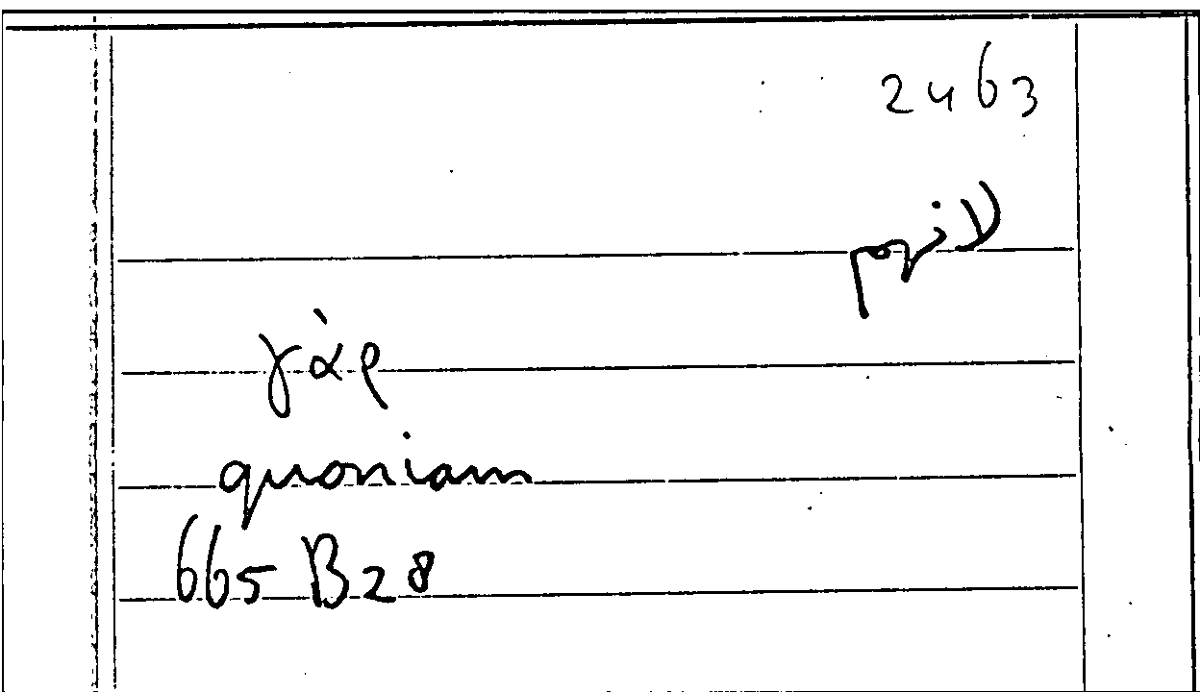 2463
γὰρ
quoniam
665 B28